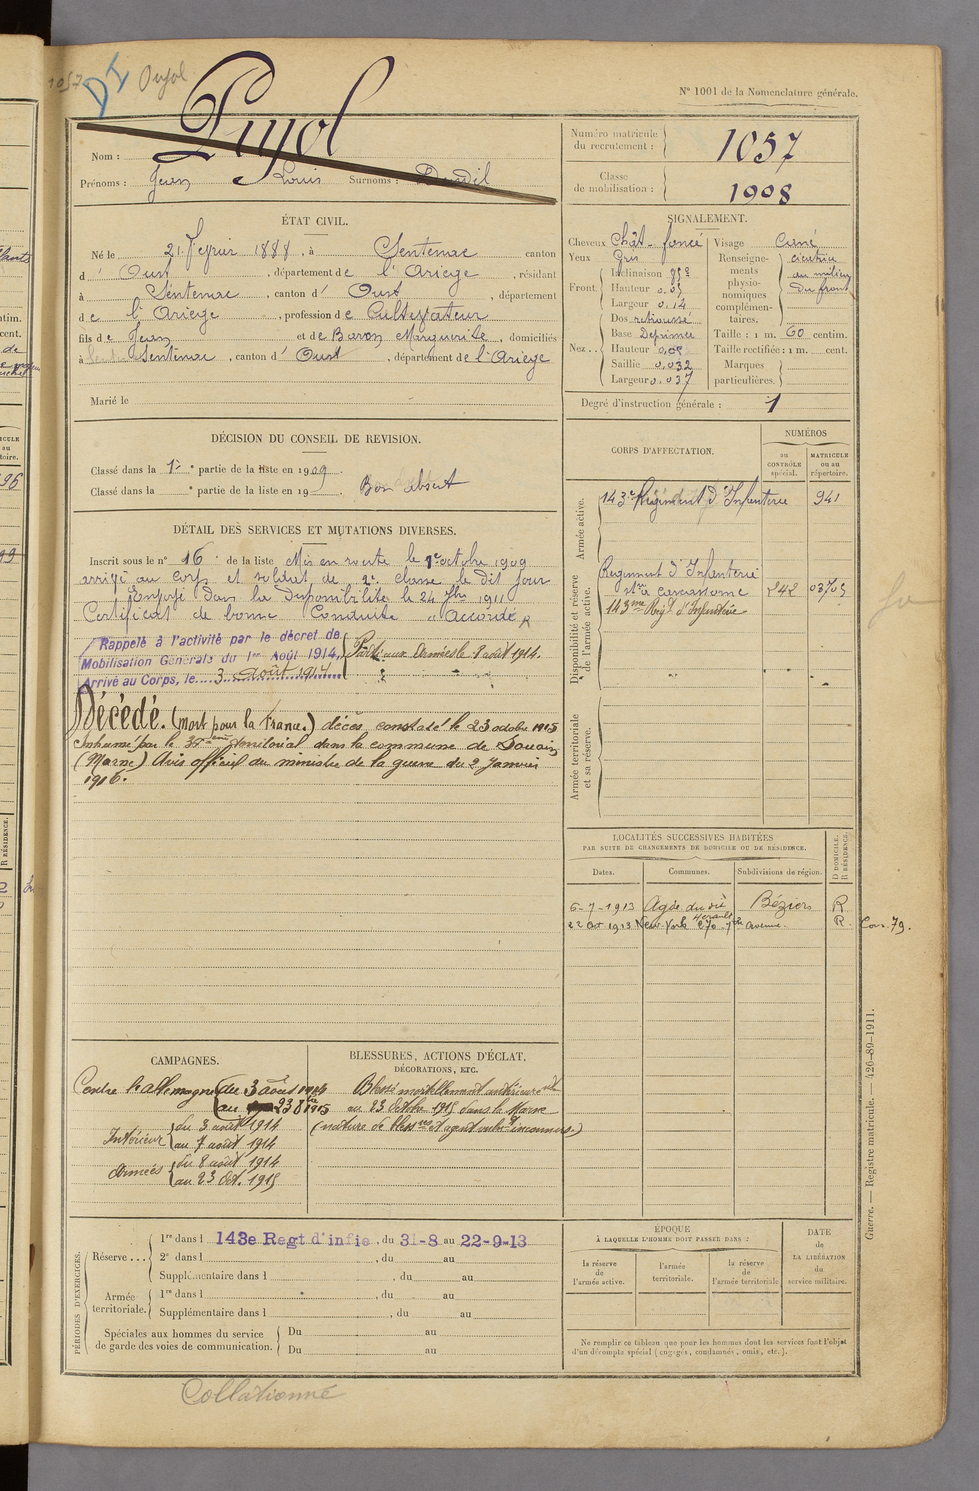 1057 DI Pujol
N° 1001 de la Nomenclature générale.
Nom : Pujol
Prénoms : Jean Louis Surnoms :
Numéro matricule du recrutement : 1057
Classe de mobilisation : 1908
ÉTAT CIVIL.
Né le 21 Février 1888, à Sentenac canton
d'Oust, département de l'Ariege, résidant
à Sentenac, canton d'Oust, département
de l'Ariege, profession de Cultivateur
fils de Jean et de Baron Marguerite, domiciliés
à Sentenac, canton d'Oust, département de l'Ariege
Marié le
SIGNALEMENT.
Cheveux Chât-foncé
Yeux Gris
Front. Inclinaison
Hauteur 0.05
Largeur 0.14
Nez.. Dos retroussé
Base Deprimée
Hauteur 0,05
Saillie 0,032
Largeur 0,037
Visage Carré
Renseignements physionomiques complémentaires. cicatrice
au milieu
du front
Taille : 1 m. 60 centim.
Taille rectifiée : 1 m. cent.
Marques particulières.
Degré d'instruction générale : 1
DÉCISION DU CONSEIL DE REVISION.
Classé dans la 1re partie de la liste en 1909.
Classé dans la e partie de la liste en 19 . Bon absent
DÉTAIL DES SERVICES ET MUTATIONS DIVERSES.
Inscrit sous le n° 16 de la liste Mis en route le 1er octobre 1909
arrivé au corps et soldat de 2e classe le dit jour
Envoyé dans la Disponibilité le 24 7bre 1911
Certificat de bonne Conduite "Accordé"
Rappelé à l'activité par le décret de
Mobilisation Générale du 1er Août 1914,
Arrivé au Corps, le 3 août 1914
Parti aux Armées le 8 août 1914.
Décédé. (Mort pour la France.) décès constaté le 23 octobre 1915
inhumé par le territorial dans la commune de Souain
(Marne) Avis officiel du ministre de la guerre du 2 Janvier
1916.
CORPS D'AFFECTATION.
NUMÉROS
au CONTRÔLE spécial.
MATRICULE ou au répertoire.
Armée active.
143e Régiment d'Infanterie 941
Disponibilité et réserve de l'armée active.
Regiment d'Infanterie
Carcassonne 242
143me Regt d'Infanterie
Armée territoriale et sa réserve.
LOCALITÉS SUCCESSIVES HABITÉES
PAR SUITE DE CHANGEMENTS DE DOMICILE OU DE RÉSIDENCE.
Dates. Communes. Subdivisions de région. D DOMICILE. R RÉSIDENCE.
6-7-1913 Agde Hérault Béziers R
22 Oct 1913 New-York 270. 7th avenue. R. Cons. 79.
CAMPAGNES.
Contre l'allemagne du 3 août 1914
au 23 8bre 1915
Intérieur du 3 août 1914
au 7 août 1914
Armées du 8 août 1914
au 23 Oct. 1915
BLESSURES, ACTIONS D'ÉCLAT,
DÉCORATIONS, ETC.
Blessé mortellement antérieuremt
au 23 Octobre 1915 dans la Marne
(nature de blessres et agent vulnt inconnus.)
PÉRIODES D'EXERCICES.
Réserve... 1re dans l 143e Regt d'infie, du 31-8 au 22-9-13
2e dans l , du au
Supplémentaire dans l , du au
Armée territoriale. 1re dans l , du au
Supplémentaire dans l , du au
Spéciales aux hommes du service de garde des voies de communication. Du au
Du au
ÉPOQUE
À LAQUELLE L'HOMME DOIT PASSER DANS :
la réserve de l'armée active.
l'armée territoriale.
la réserve de l'armée territoriale
DATE de LA LIBÉRATION du service militaire.
Ne remplir ce tableau que pour les hommes dont les services font l'objet
d'un décompte spécial (engagés, condamnés, omis, etc.).
Guerre. — Registre matricule. — 426-89-1911.
Collationné